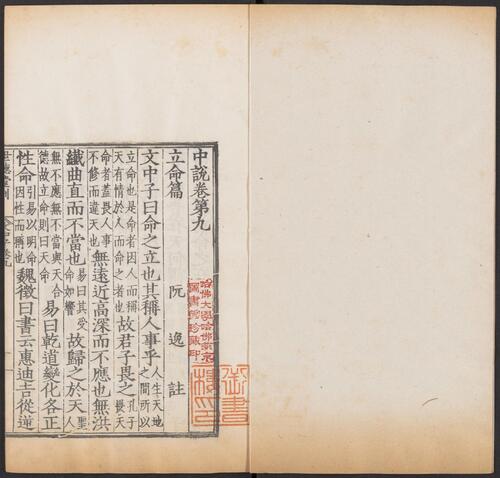 中說卷第九
立命篇 阮逸註
文中子曰命之立也其稱人事乎人生天地之間所以
立命也是命者因人而稱天有情於人而命之者也故君子畏之孔子畏天
命者蓋畏人事不修而違天也無遠近高深而不應也無洪
纖曲直而不當也易曰其受命如響故歸之於天聖人
無不應無不當與天合德故立命則曰天命易曰乾道變化各正
性命引易以明命因性而稱也魏徵曰書云惠迪吉從逆
世德堂刊
哈佛大學哈佛燕京
圖書館珍藏印